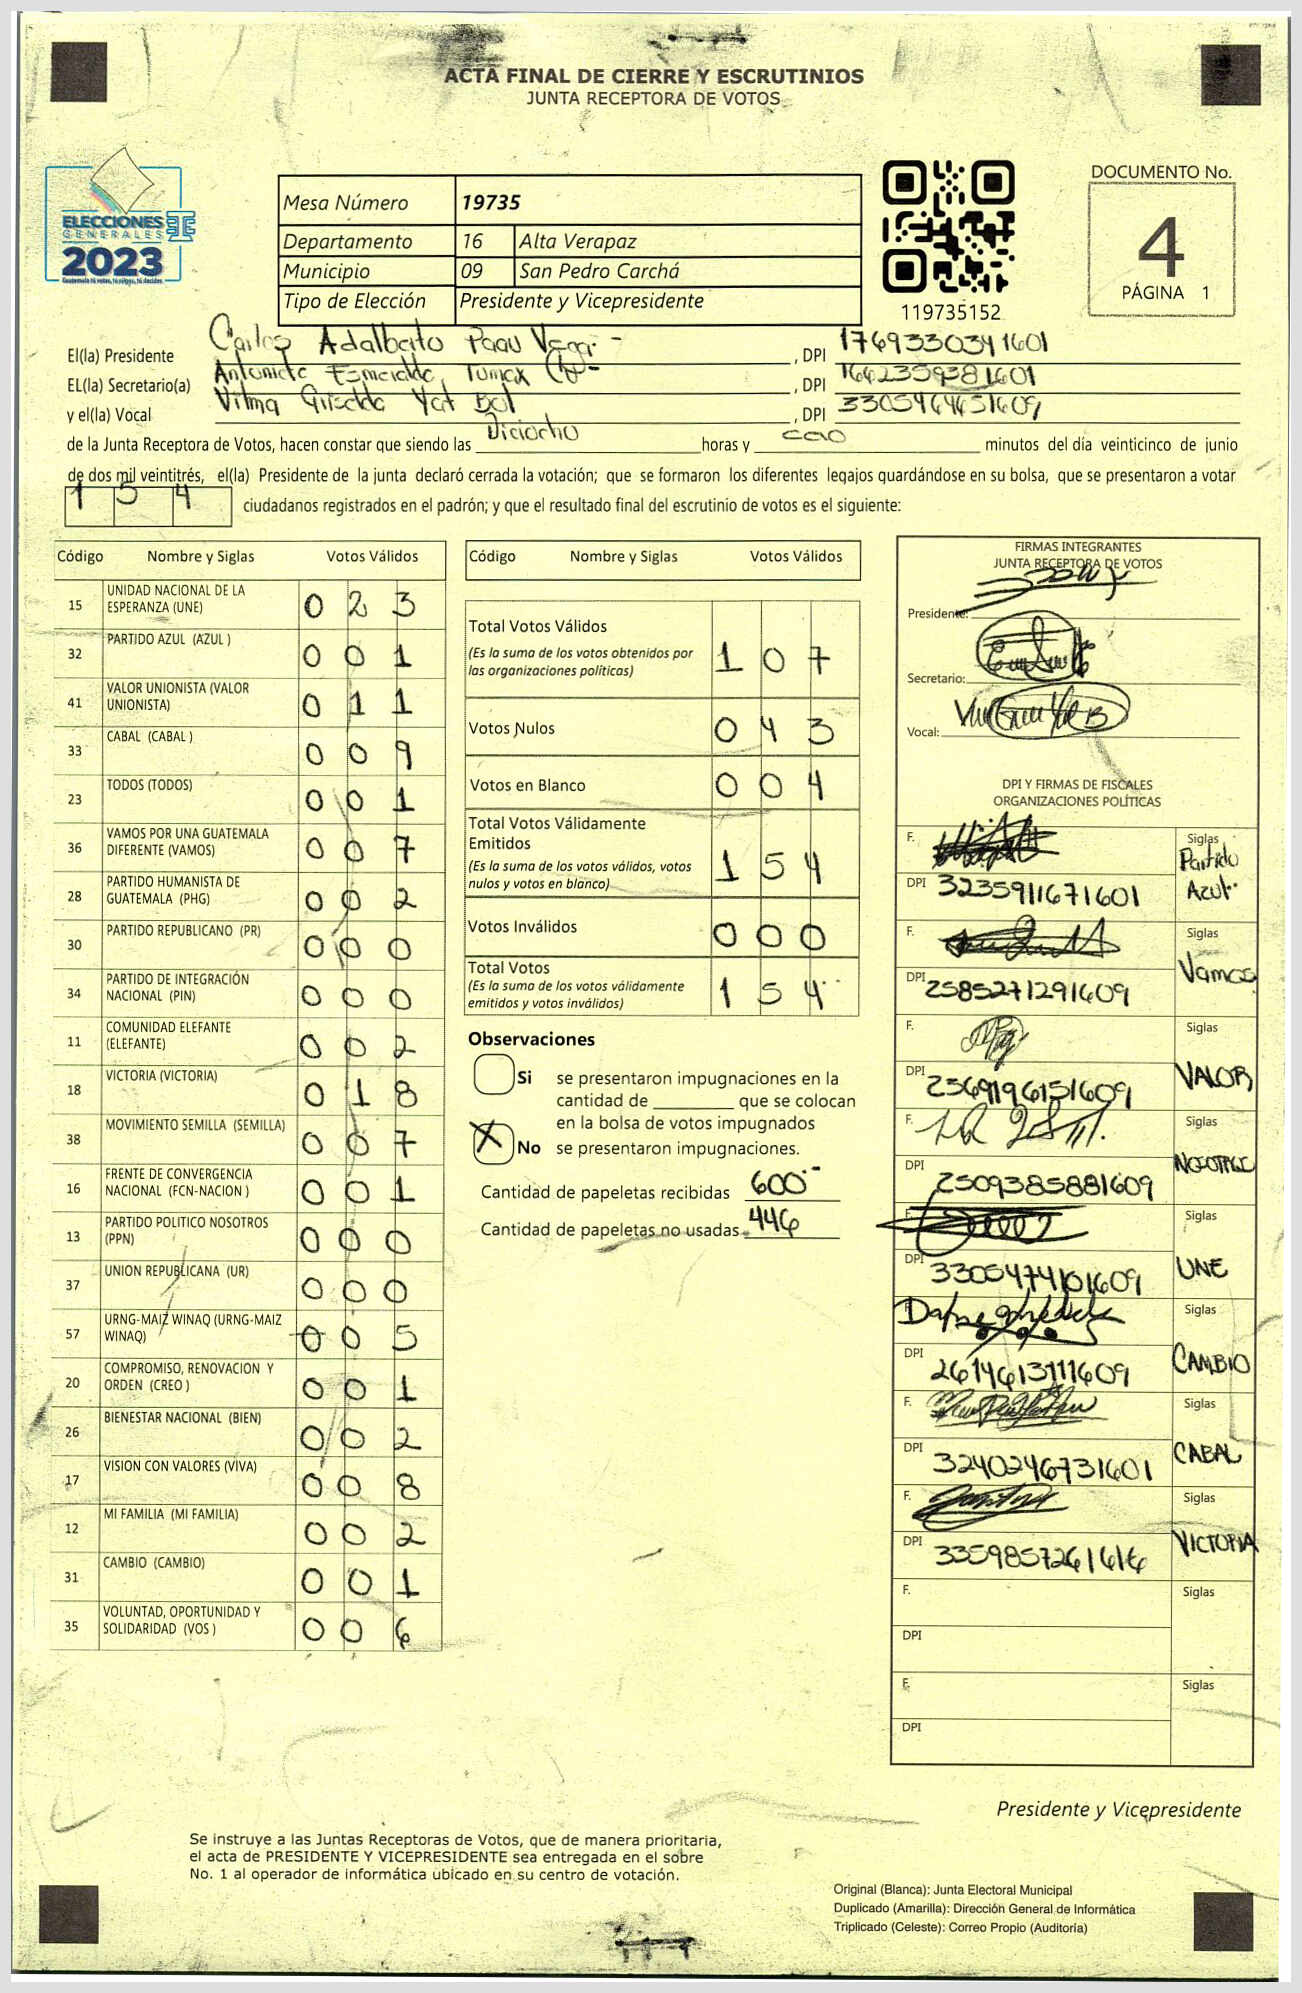 ACTA FINAL DE CIERRE Y ESCRUTINIOS
JUNTA RECEPTORA DE VOTOS
ELECCIONES
GENERALES
2023
Guatemala tú votas, tú eliges, tú decides
Mesa Número 19735
Departamento 16 Alta Verapaz
Municipio 09 San Pedro Carchá
Tipo de Elección Presidente y Vicepresidente
119735152
DOCUMENTO No.
4
PÁGINA 1
El(la) Presidente Carlos Adalberto Paau , DPI 1769330341601
EL(la) Secretario(a) Antonieta Esmeralda Tumax , DPI 1662359381601
y el(la) Vocal Vilma Griselda Yat Bol , DPI 3305464451609
de la Junta Receptora de Votos, hacen constar que siendo las Diciocho horas y cero minutos del día veinticinco de junio
de dos mil veintitrés, el(la) Presidente de la junta declaró cerrada la votación; que se formaron los diferentes legajos guardándose en su bolsa, que se presentaron a votar
1 5 4 ciudadanos registrados en el padrón; y que el resultado final del escrutinio de votos es el siguiente:
Código Nombre y Siglas Votos Válidos
15 UNIDAD NACIONAL DE LA ESPERANZA (UNE) 0 2 3
32 PARTIDO AZUL (AZUL ) 0 0 1
41 VALOR UNIONISTA (VALOR UNIONISTA) 0 1 1
33 CABAL (CABAL ) 0 0 9
23 TODOS (TODOS) 0 0 1
36 VAMOS POR UNA GUATEMALA DIFERENTE (VAMOS) 0 0 7
28 PARTIDO HUMANISTA DE GUATEMALA (PHG) 0 0 2
30 PARTIDO REPUBLICANO (PR) 0 0 0
34 PARTIDO DE INTEGRACIÓN NACIONAL (PIN) 0 0 0
11 COMUNIDAD ELEFANTE (ELEFANTE) 0 0 2
18 VICTORIA (VICTORIA) 0 1 8
38 MOVIMIENTO SEMILLA (SEMILLA) 0 0 7
16 FRENTE DE CONVERGENCIA NACIONAL (FCN-NACION ) 0 0 1
13 PARTIDO POLITICO NOSOTROS (PPN) 0 0 0
37 UNION REPUBLICANA (UR) 0 0 0
57 URNG-MAIZ WINAQ (URNG-MAIZ WINAQ) 0 0 5
20 COMPROMISO, RENOVACION Y ORDEN (CREO ) 0 0 1
26 BIENESTAR NACIONAL (BIEN) 0 0 2
17 VISION CON VALORES (VIVA) 0 0 8
12 MI FAMILIA (MI FAMILIA) 0 0 2
31 CAMBIO (CAMBIO) 0 0 1
35 VOLUNTAD, OPORTUNIDAD Y SOLIDARIDAD (VOS ) 0 0 6
Código Nombre y Siglas Votos Válidos
Total Votos Válidos
(Es la suma de los votos obtenidos por
las organizaciones políticas) 1 0 7
Votos Nulos 0 4 3
Votos en Blanco 0 0 4
Total Votos Válidamente
Emitidos
(Es la suma de los votos válidos, votos
nulos y votos en blanco) 1 5 4
Votos Inválidos 0 0 0
Total Votos
(Es la suma de los votos válidamente
emitidos y votos inválidos) 1 5 4
Observaciones
Si se presentaron impugnaciones en la
cantidad de ________ que se colocan
en la bolsa de votos impugnados
X No se presentaron impugnaciones.
Cantidad de papeletas recibidas 600
Cantidad de papeletas no usadas 446
FIRMAS INTEGRANTES
JUNTA RECEPTORA DE VOTOS
Presidente:
Secretario:
Vocal:
DPI Y FIRMAS DE FISCALES
ORGANIZACIONES POLÍTICAS
F. Siglas Partido Azul
DPI 3235911671601
F. Siglas Vamos
DPI 2585271291609
F. Siglas VALOR
DPI 2569196151609
F. Siglas
DPI 2509385881609
F. Siglas UNE
DPI 3305474101609
F. Siglas CAMBIO
DPI 2614613111609
F. Siglas CABAL
DPI 3240246731601
F. Siglas VICTORIA
DPI 3359857261616
F. Siglas
DPI
F. Siglas
DPI
Presidente y Vicepresidente
Se instruye a las Juntas Receptoras de Votos, que de manera prioritaria,
el acta de PRESIDENTE Y VICEPRESIDENTE sea entregada en el sobre
No. 1 al operador de informática ubicado en su centro de votación.
Original (Blanca): Junta Electoral Municipal
Duplicado (Amarilla): Dirección General de Informática
Triplicado (Celeste): Correo Propio (Auditoría)